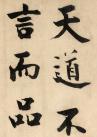 天道不
言而品